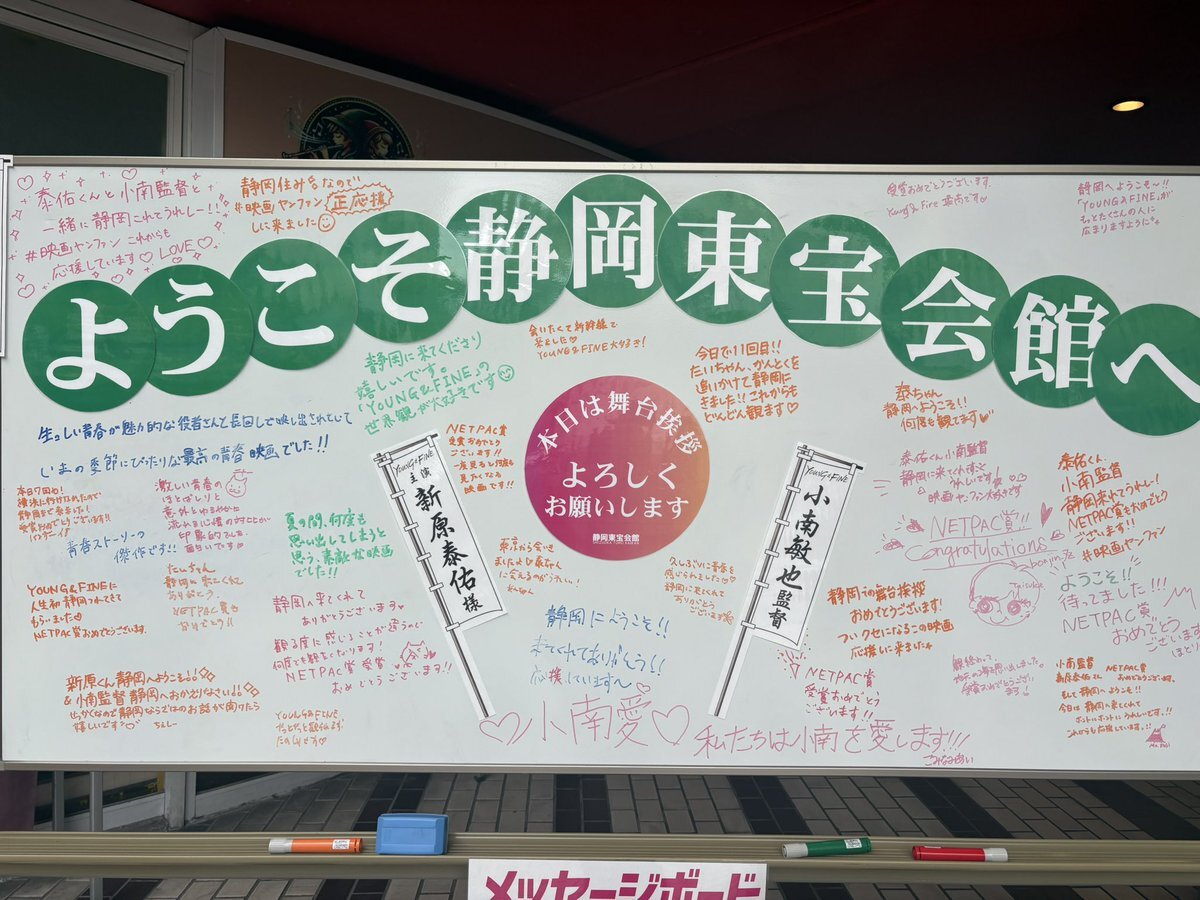 泰佑くんと小南監督と
一緒に静岡これてうれしー!!
#映画ヤンファン これからも
応援しています♡ LOVE♡
静岡住み名なので
#映画ヤンファン 正応援
しに来ました☺
受賞おめでとうございます。
静岡へようこそ〜!!
「YOUNG&FINE」が
もっとたくさんの人に
広まりますように
ようこそ静岡東宝会館へ
静岡に来てくださり
嬉しいです。
「YOUNG&FINE」の
世界観が大好きです☺
会いたくて新幹線で
来ました♡
YOUNG&FINE大好き!
今日で11回目!!
たいちゃん、かんとくを
追いかけて静岡に
きました!!これからも
どんどん観ます♡
泰ちゃん
静岡へようこそ!!
何度も観てます
生っしい青春が魅力的な役者さんと長回しで映し出されていて
いまの季節にぴったりな最高の青春映画でした!!
NETPAC賞
受賞おめでとう
ございます!!
一度見ると何度も
見たくなる
映画です!!
本日は舞台挨拶
よろしく
お願いします
静岡東宝会館
YOUNG&FINE
主演 新原泰佑様
YOUNG&FINE
小南敏也監督
本日7回目!
横浜に行けなかったので
静岡まで来ました!
受賞おめでとうございます!!
激しい青春の
ほとばしりと
意外とゆるやかに
流れる心情の対比が
印象的でした。
面白いです♡
青春ストーリーの
傑作です!!
夏の間、何度も
思い出してしまうと
思う、素敵な映画
でした!!
泰佑くん、小南監督
静岡に来てくれて
うれしいです!
映画ヤンファン大好きです
泰佑くん、
小南監督
静岡来れてうれし!
NETPAC賞おめでとう
ございます!
#映画ヤンファン
NETPAC賞!!
Congratulations
Taisuke
YOUNG&FINEに
人生初静岡つれてきて
もらいました♡
NETPAC賞おめでとうございます。
たいちゃん
静岡に来てくれて
ありがとう
NETPAC賞も
おめでとう!!
東京から会いに
ました♡泰ちゃん
に会えるのがうれしい!
久しぶりに青春を
感じられました♡
静岡に来てくれて
ありがとう
ございます
静岡での舞台挨拶
おめでとうございます!
ついクセになるこの映画
応援しに来ました
ようこそ!!
待ってました!!!
NETPAC賞
おめでとう
ございます
静岡へ来てくれて
ありがとうございます
観る度に感じることが違うので
何度でも観たくなります!
NETPAC賞 受賞
おめでとうございます!!
静岡にようこそ!!
来てくれてありがとう!!
応援しています〜
NETPAC賞
受賞おめでとう
ございます!!
新原くん静岡へようこそ!!
&小南監督 静岡へおかえりなさい!!
せっかくなので静岡ならではのお話が聞けたら
嬉しいです
YOUNG&FINE
たのしみです♡
♡小南愛♡
私たちは小南を愛します!!!
こみなみあい
小南監督 NETPAC賞
新原泰佑さん おめでとうございます。
そして静岡へようこそ!!
今日は静岡へ来てくれて
ホントにホントにうれしいです!!
これからも応援しています!!
Mt. FUJI
メッセージボード